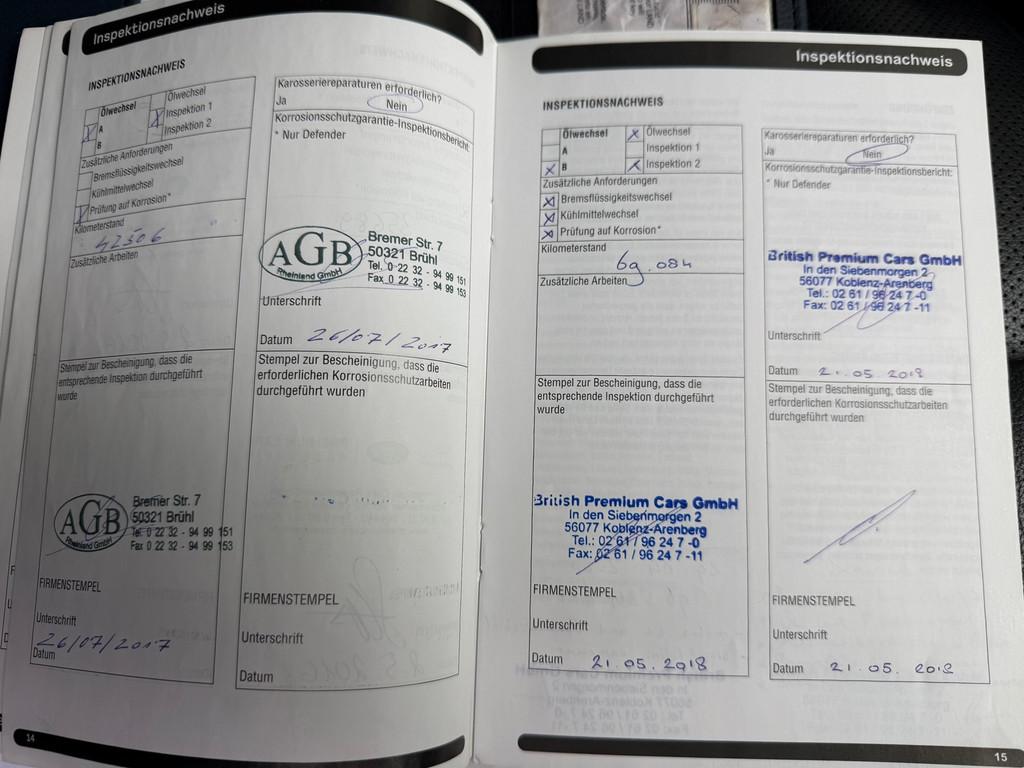 Inspektionsnachweis
INSPEKTIONSNACHWEIS
Ölwechsel
A
B
Ölwechsel
Inspektion 1
Inspektion 2
Zusätzliche Anforderungen
Bremsflüssigkeitswechsel
Kühlmittelwechsel
Prüfung auf Korrosion*
Kilometerstand
42506
Zusätzliche Arbeiten
Stempel zur Bescheinigung, dass die
entsprechende Inspektion durchgeführt
wurde
AGB
Rheinland GmbH
Bremer Str. 7
50321 Brühl
Tel. 0 22 32 - 94 99 151
Fax 0 22 32 - 94 99 153
FIRMENSTEMPEL
Unterschrift
26/07/2017
Datum
Karosseriereparaturen erforderlich?
Ja
Nein
Korrosionsschutzgarantie-Inspektionsbericht:
* Nur Defender
AGB
Rheinland GmbH
Bremer Str. 7
50321 Brühl
Tel. 0 22 32 - 94 99 151
Fax 0 22 32 - 94 99 153
Unterschrift
Datum 26/07/2017
Stempel zur Bescheinigung, dass die
erforderlichen Korrosionsschutzarbeiten
durchgeführt wurden
FIRMENSTEMPEL
Unterschrift
Datum
14
Inspektionsnachweis
INSPEKTIONSNACHWEIS
Ölwechsel
A
B
Ölwechsel
Inspektion 1
Inspektion 2
Zusätzliche Anforderungen
Bremsflüssigkeitswechsel
Kühlmittelwechsel
Prüfung auf Korrosion*
Kilometerstand
69.084
Zusätzliche Arbeiten
Stempel zur Bescheinigung, dass die
entsprechende Inspektion durchgeführt
wurde
British Premium Cars GmbH
In den Siebenmorgen 2
56077 Koblenz-Arenberg
Tel.: 02 61 / 96 24 7 -0
Fax: 02 61 / 96 24 7 -11
FIRMENSTEMPEL
Unterschrift
Datum 21.05.2018
Karosseriereparaturen erforderlich?
Ja
Nein
Korrosionsschutzgarantie-Inspektionsbericht:
* Nur Defender
British Premium Cars GmbH
In den Siebenmorgen 2
56077 Koblenz-Arenberg
Tel.: 02 61 / 96 24 7 -0
Fax: 02 61 / 96 24 7 -11
Unterschrift
Datum 21.05.2018
Stempel zur Bescheinigung, dass die
erforderlichen Korrosionsschutzarbeiten
durchgeführt wurden
FIRMENSTEMPEL
Unterschrift
Datum 21.05.2018
15